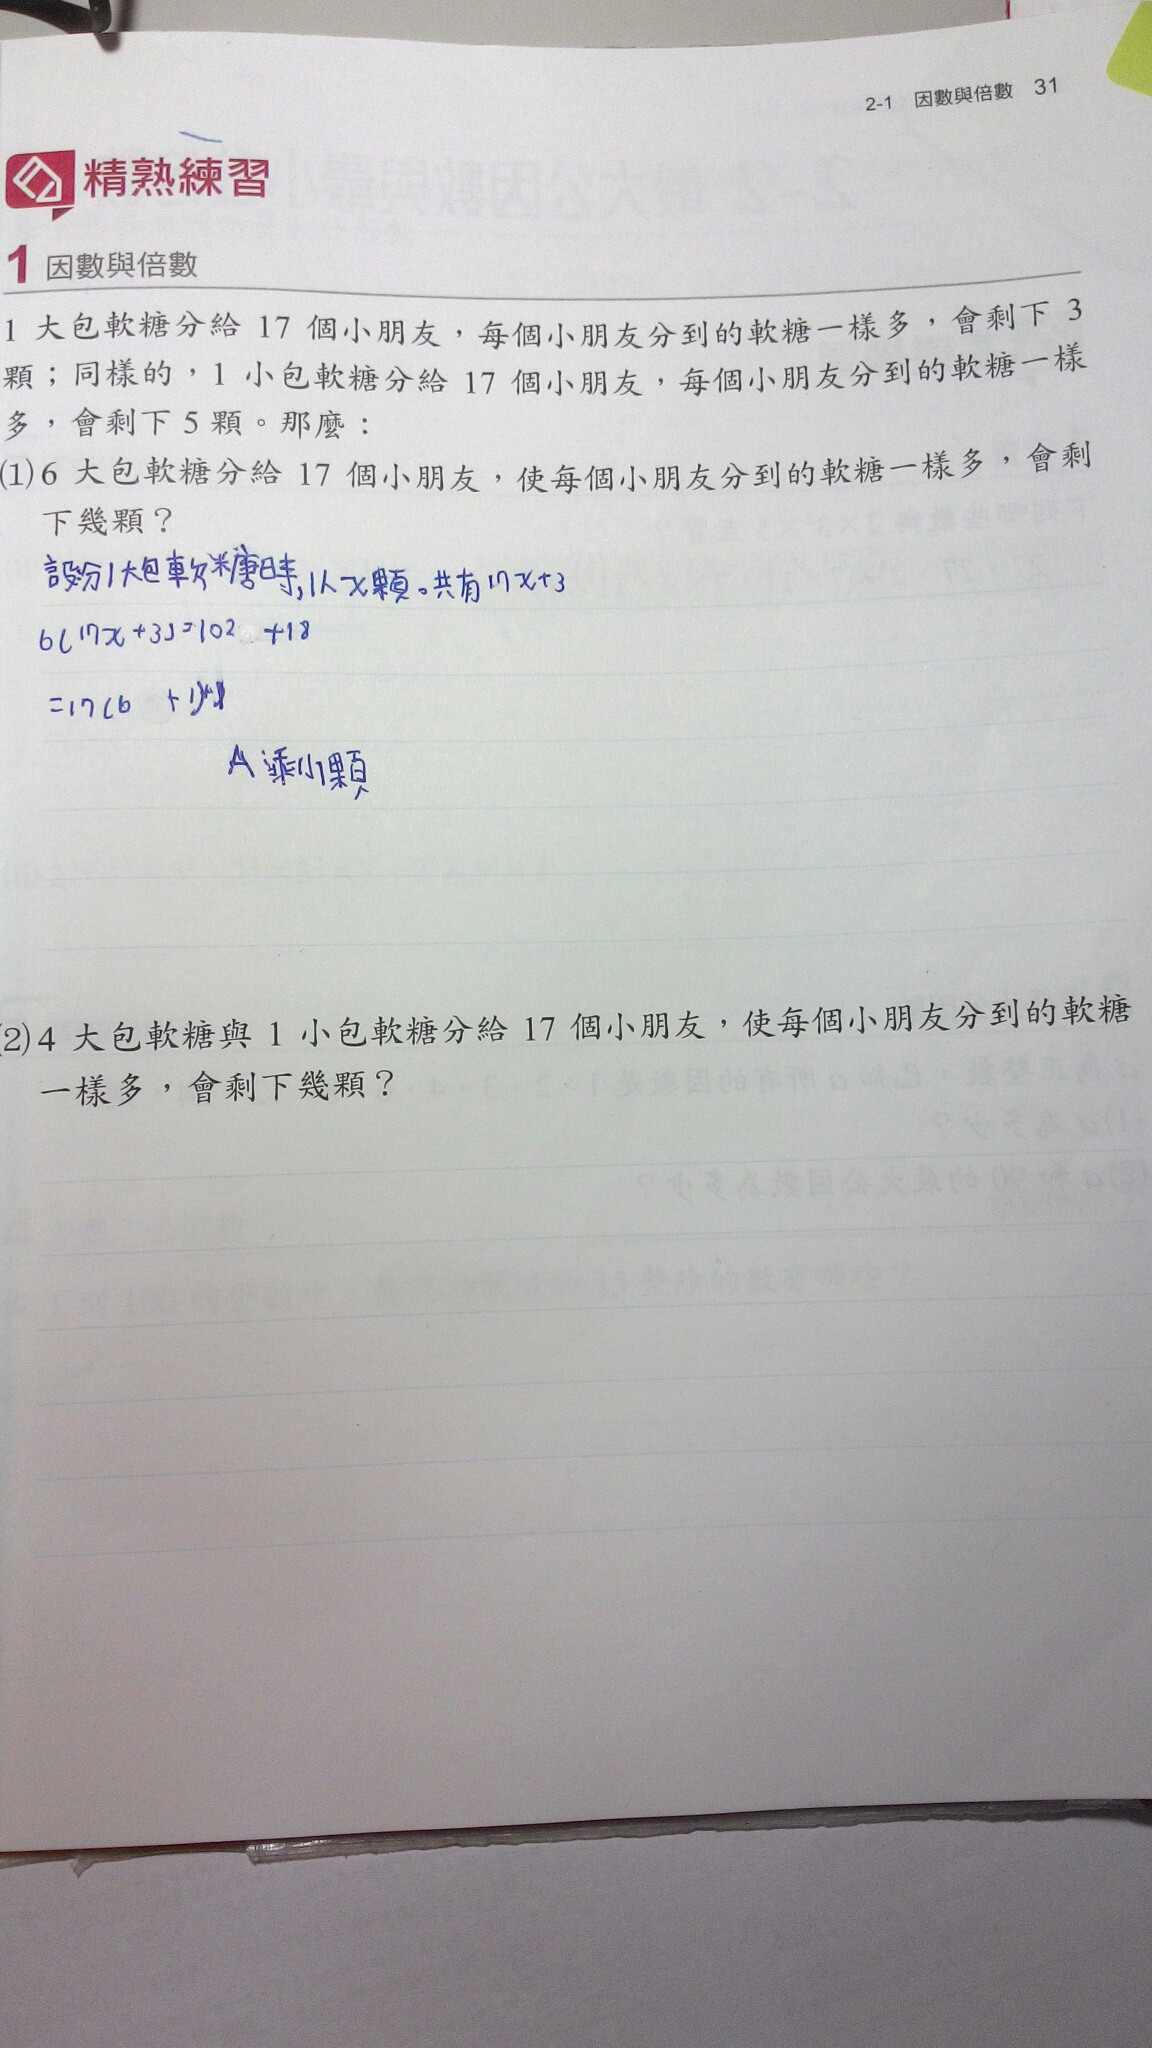 2-1 因數與倍數 31
精熟練習
1 因數與倍數
1 大包軟糖分給 17 個小朋友，每個小朋友分到的軟糖一樣多，會剩下 3
顆；同樣的，1 小包軟糖分給 17 個小朋友，每個小朋友分到的軟糖一樣
多，會剩下 5 顆。那麼：
(1) 6 大包軟糖分給 17 個小朋友，使每個小朋友分到的軟糖一樣多，會剩
下幾顆？
設分1大包軟糖時，1人x顆。共有17x+3
6(17x+3)=102 +18
=17(6 +1)
A 剩1顆
(2) 4 大包軟糖與 1 小包軟糖分給 17 個小朋友，使每個小朋友分到的軟糖
一樣多，會剩下幾顆？